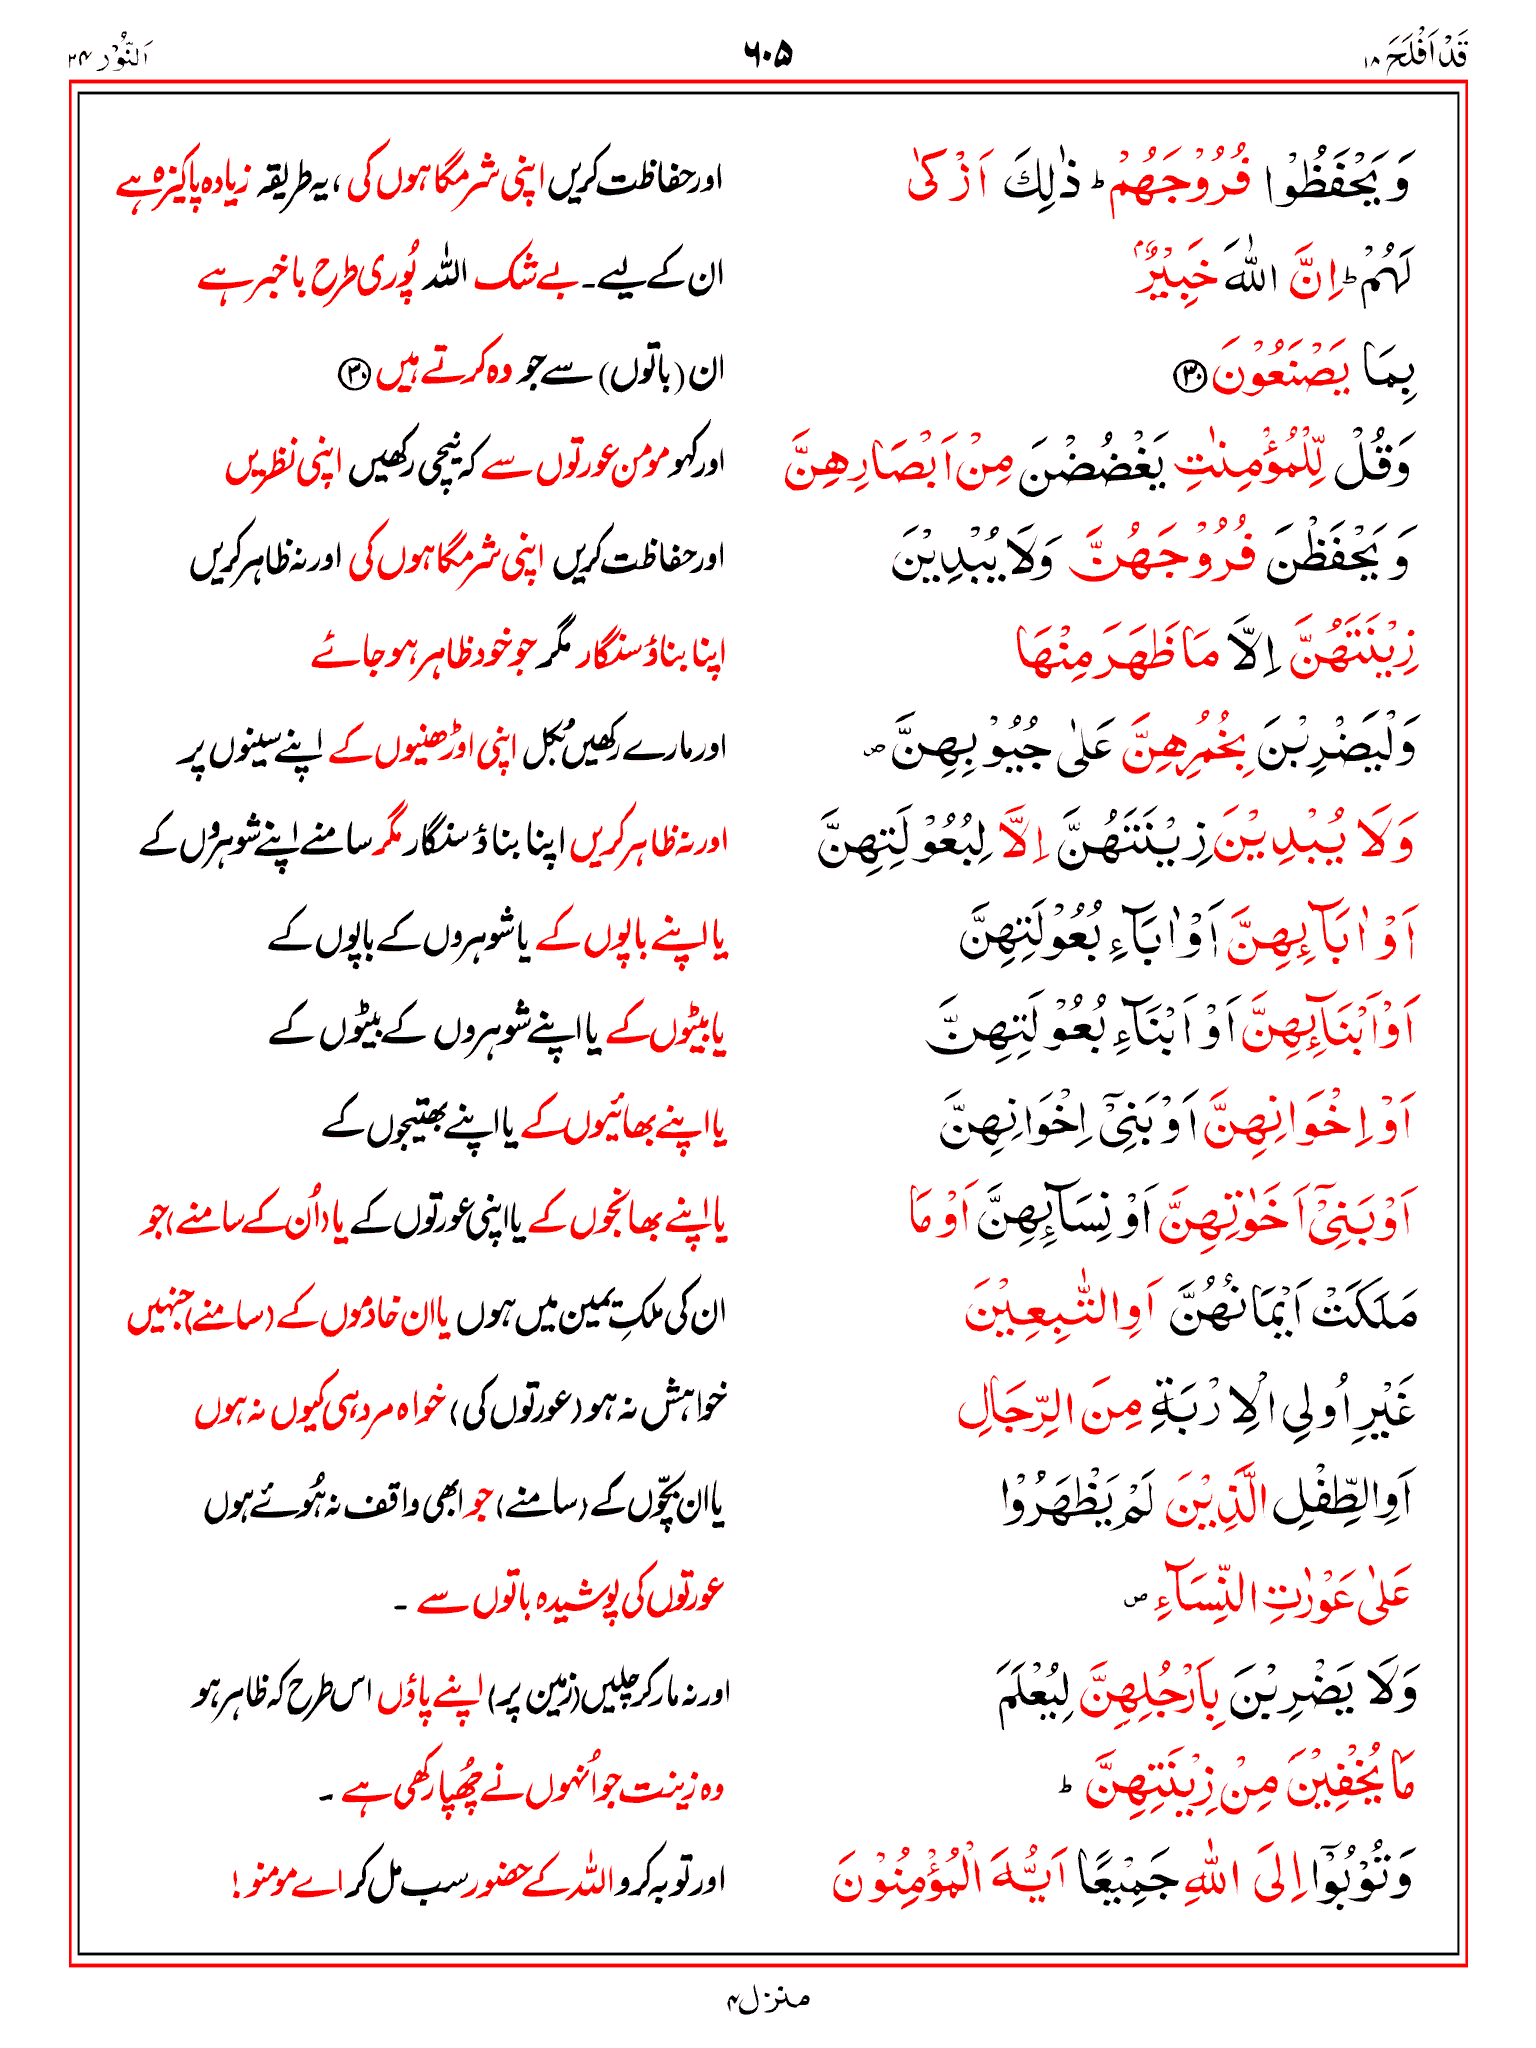 قَدْ اَفْلَحَ ۱۸ ۶۰۵ اَلنُّوْر ۲۴
وَ يَحْفَظُوْا فُرُوْجَهُمْ ؕ ذٰلِكَ اَزْكٰى اور حفاظت کریں اپنی شرمگاہوں کی ، یہ طریقہ زیادہ پاکیزہ ہے
لَهُمْ ؕ اِنَّ اللّٰهَ خَبِيْرٌۢ ان کے لیے۔ بے شک اللہ پُوری طرح باخبر ہے
بِمَا يَصْنَعُوْنَ ۳۰ ان (باتوں) سے جو وہ کرتے ہیں ۳۰
وَقُلْ لِّلْمُؤْمِنٰتِ يَغْضُضْنَ مِنْ اَبْصَارِهِنَّ اور کہو مومن عورتوں سے کہ نیچی رکھیں اپنی نظریں
وَ يَحْفَظْنَ فُرُوْجَهُنَّ وَلَا يُبْدِيْنَ اور حفاظت کریں اپنی شرمگاہوں کی اور نہ ظاہر کریں
زِيْنَتَهُنَّ اِلَّا مَا ظَهَرَ مِنْهَا اپنا بناؤ سنگار مگر جو خود ظاہر ہو جائے
وَلْيَضْرِبْنَ بِخُمُرِهِنَّ عَلٰى جُيُوْبِهِنَّ ۪ اور مارے رکھیں بُکل اپنی اوڑھنیوں کے اپنے سینوں پر
وَلَا يُبْدِيْنَ زِيْنَتَهُنَّ اِلَّا لِبُعُوْلَتِهِنَّ اور نہ ظاہر کریں اپنا بناؤ سنگار مگر سامنے اپنے شوہروں کے
اَوْ اٰبَآئِهِنَّ اَوْ اٰبَآءِ بُعُوْلَتِهِنَّ یا اپنے باپوں کے یا شوہروں کے باپوں کے
اَوْ اَبْنَآئِهِنَّ اَوْ اَبْنَآءِ بُعُوْلَتِهِنَّ یا بیٹوں کے یا اپنے شوہروں کے بیٹوں کے
اَوْ اِخْوَانِهِنَّ اَوْ بَنِىْٓ اِخْوَانِهِنَّ یا اپنے بھائیوں کے یا اپنے بھتیجوں کے
اَوْ بَنِىْٓ اَخَوٰتِهِنَّ اَوْ نِسَآئِهِنَّ اَوْ مَا یا اپنے بھانجوں کے یا اپنی عورتوں کے یا (اُن کے سامنے) جو
مَلَكَتْ اَيْمَانُهُنَّ اَوِ التّٰبِعِيْنَ ان کی ملکِ یمین میں ہوں یا ان خادموں کے (سامنے) جنہیں
غَيْرِ اُولِى الْاِرْبَةِ مِنَ الرِّجَالِ خواہش نہ ہو (عورتوں کی) خواہ مرد ہی کیوں نہ ہوں
اَوِ الطِّفْلِ الَّذِيْنَ لَمْ يَظْهَرُوْا یا ان بچّوں کے (سامنے) جو ابھی واقف نہ ہُوئے ہوں
عَلٰى عَوْرٰتِ النِّسَآءِ ۪ عورتوں کی پوشیدہ باتوں سے ۔
وَلَا يَضْرِبْنَ بِاَرْجُلِهِنَّ لِيُعْلَمَ اور نہ مار کر چلیں (زمین پر) اپنے پاؤں اس طرح کہ ظاہر ہو
مَا يُخْفِيْنَ مِنْ زِيْنَتِهِنَّ ؕ وہ زینت جو اُنہوں نے چُھپا رکھی ہے ۔
وَتُوْبُوْٓا اِلَى اللّٰهِ جَمِيْعًا اَيُّهَ الْمُؤْمِنُوْنَ اور توبہ کرو اللہ کے حضور سب مل کر اے مومنو !
منزل ۴